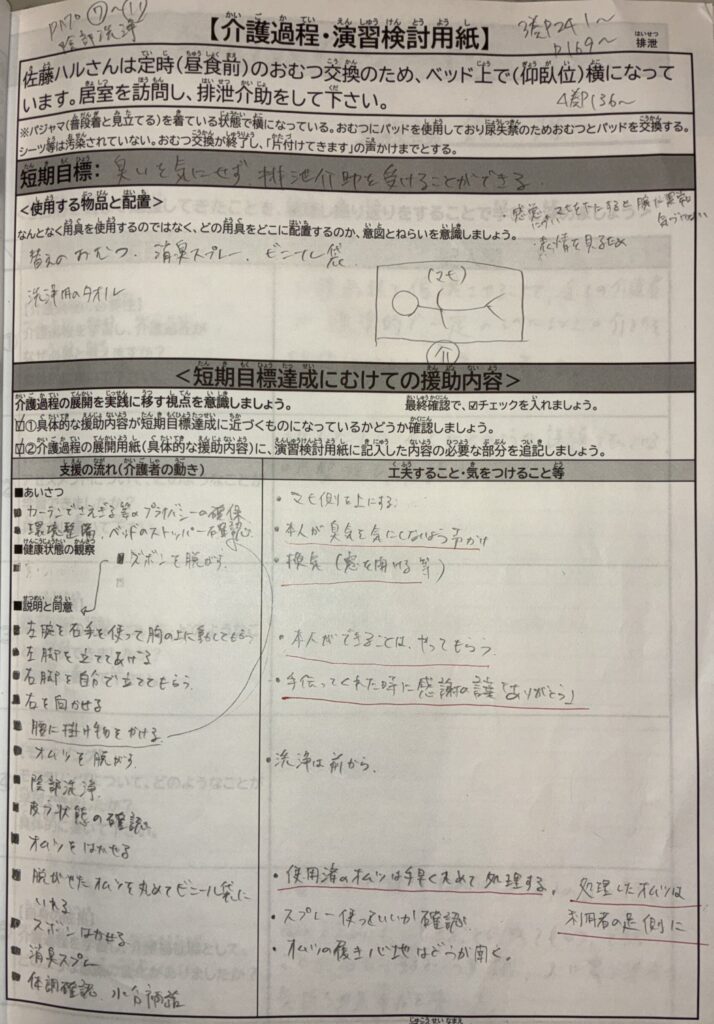 P170 ⑦~⑪
陰部洗浄
【介護過程・演習検討用紙】
3巻P241~
P169~
排泄
佐藤ハルさんは定時(昼食前)のおむつ交換のため、ベッド上で(仰臥位)横になって
います。居室を訪問し、排泄介助をして下さい。
4巻P136~
※パジャマ(普段着と見立てる)を着ている状態で横になっている。おむつにパッドを使用しており尿失禁のためおむつとパッドを交換する。
シーツ等は汚染されていない。おむつ交換が終了し、「片付けてきます」の声かけまでとする。
短期目標: 臭いを気にせず、排泄介助を受けることができる
<使用する物品と配置>
なんとなく用具を使用するのではなく、どの用具をどこに配置するのか、意図とねらいを意識しましょう。
・表情を見るため
替えのおむつ、消臭スプレー、ビニール袋
洗浄用のタオル
(マヒ)
介
<短期目標達成にむけての援助内容>
介護過程の展開を実践に移す視点を意識しましょう。 最終確認で、☑チェックを入れましょう。
☑①具体的な援助内容が短期目標達成に近づくものになっているかどうか確認しましょう。
☑②介護過程の展開用紙(具体的な援助内容)に、演習検討用紙に記入した内容の必要な部分を追記しましょう。
支援の流れ(介護者の動き)
工夫すること・気をつけること等
■あいさつ
カーテンでさえぎる等のプライバシーの確保
環境整備、ベッドのストッパー確認
■健康状態の観察
ズボンを脱がす
■説明と同意
左腕を右手を使って胸の上に動してもらう
左脚を立ててあげる
右脚を自分で立ててもらう
右を向かせる
腰に掛け物をかける
オムツを脱がす
陰部洗浄
皮フ状態の確認
オムツをはかせる
脱がせたオムツを丸めてビニール袋に
いれる
ズボンはかせる
消臭スプレー
体調確認、水分補給
・マヒ側を上にする
・本人が臭気を気にしないよう声かけ
・換気(窓を開ける等)
・本人ができることは、やってもらう
・手伝ってくれた時に感謝の言葉「ありがとう」
・洗浄は前から
・使用済のオムツは手早く丸めて処理する。
処理したオムツは
利用者の足側に
・スプレー使っていいか確認
・オムツの履き心地はどうか聞く。
じゅこうせいなまえ